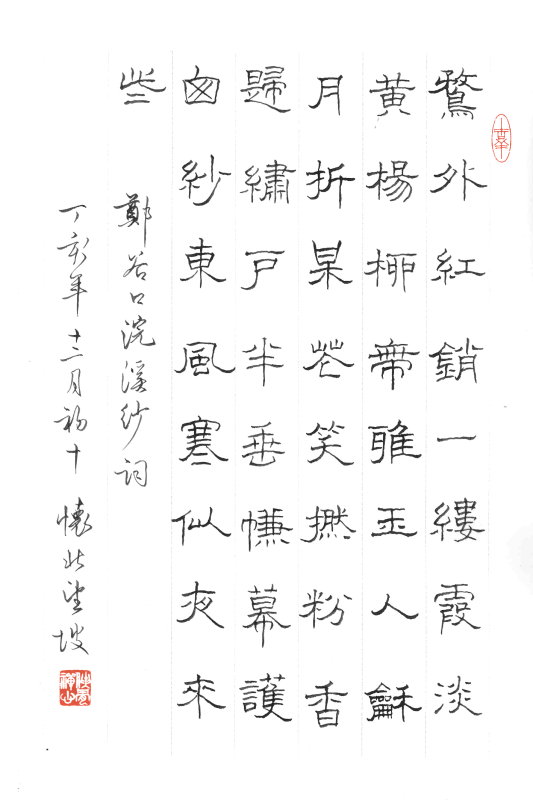 鶩外紅銷一縷霞淡
黃楊桺帶雅玉人龢
月折某花笑撚粉香
歸繡戶半垂㡘幕護
囪紗東風寒似夜來
些
鄭谷口浣溪紗詞
丁亥年十二月初十 懷北望坡